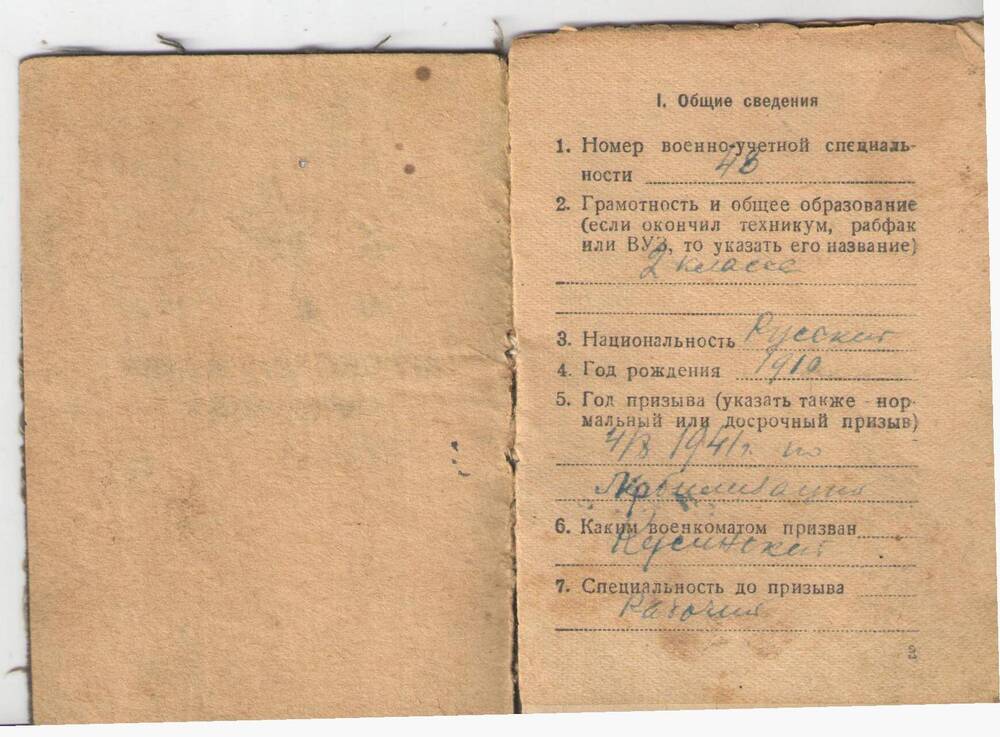 I. Общие сведения
1. Номер военно-учетной специаль-
ности 48
2. Грамотность и общее образование
(если окончил техникум, рабфак
или ВУЗ, то указать его название)
2 класса
3. Национальность Русский
4. Год рождения 1910
5. Год призыва (указать также нор-
мальный или досрочный призыв)
4/8 1941 г. по
6. Каким военкоматом призван
Кусинский
7. Специальность до призыва
Рабочий
3